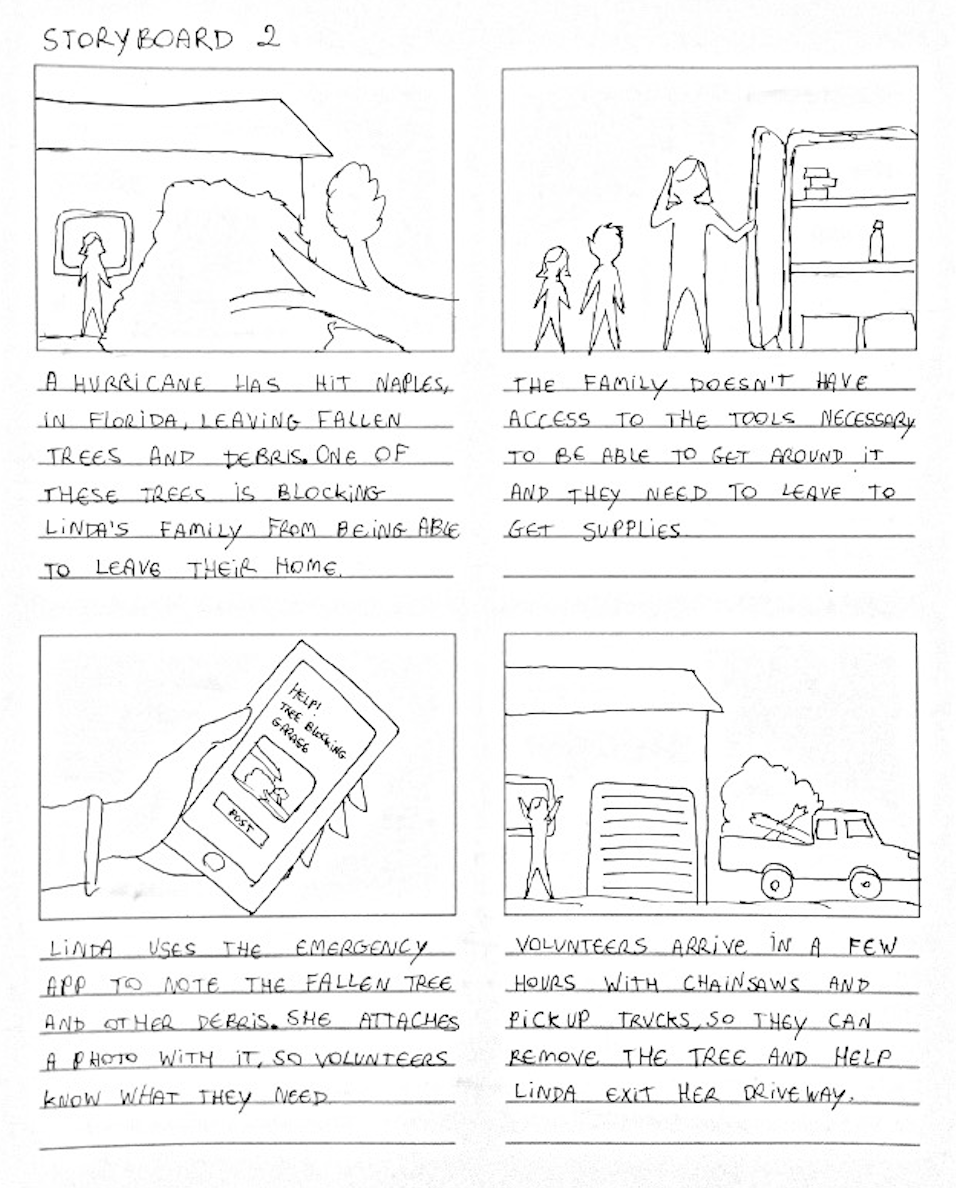 STORYBOARD 2
A HURRICANE HAS HIT NAPLES,
IN FLORIDA, LEAVING FALLEN
TREES AND DEBRIS. ONE OF
THESE TREES IS BLOCKING
LINDA'S FAMILY FROM BEING ABLE
TO LEAVE THEIR HOME.
THE FAMILY DOESN'T HAVE
ACCESS TO THE TOOLS NECESSARY
TO BE ABLE TO GET AROUND IT
AND THEY NEED TO LEAVE TO
GET SUPPLIES
HELP!
TREE BLOCKING
GARAGE
POST
LINDA USES THE EMERGENCY
APP TO NOTE THE FALLEN TREE
AND OTHER DEBRIS. SHE ATTACHES
A PHOTO WITH IT, SO VOLUNTEERS
KNOW WHAT THEY NEED
VOLUNTEERS ARRIVE IN A FEW
HOURS WITH CHAINSAWS AND
PICKUP TRUCKS, SO THEY CAN
REMOVE THE TREE AND HELP
LINDA EXIT HER DRIVEWAY.